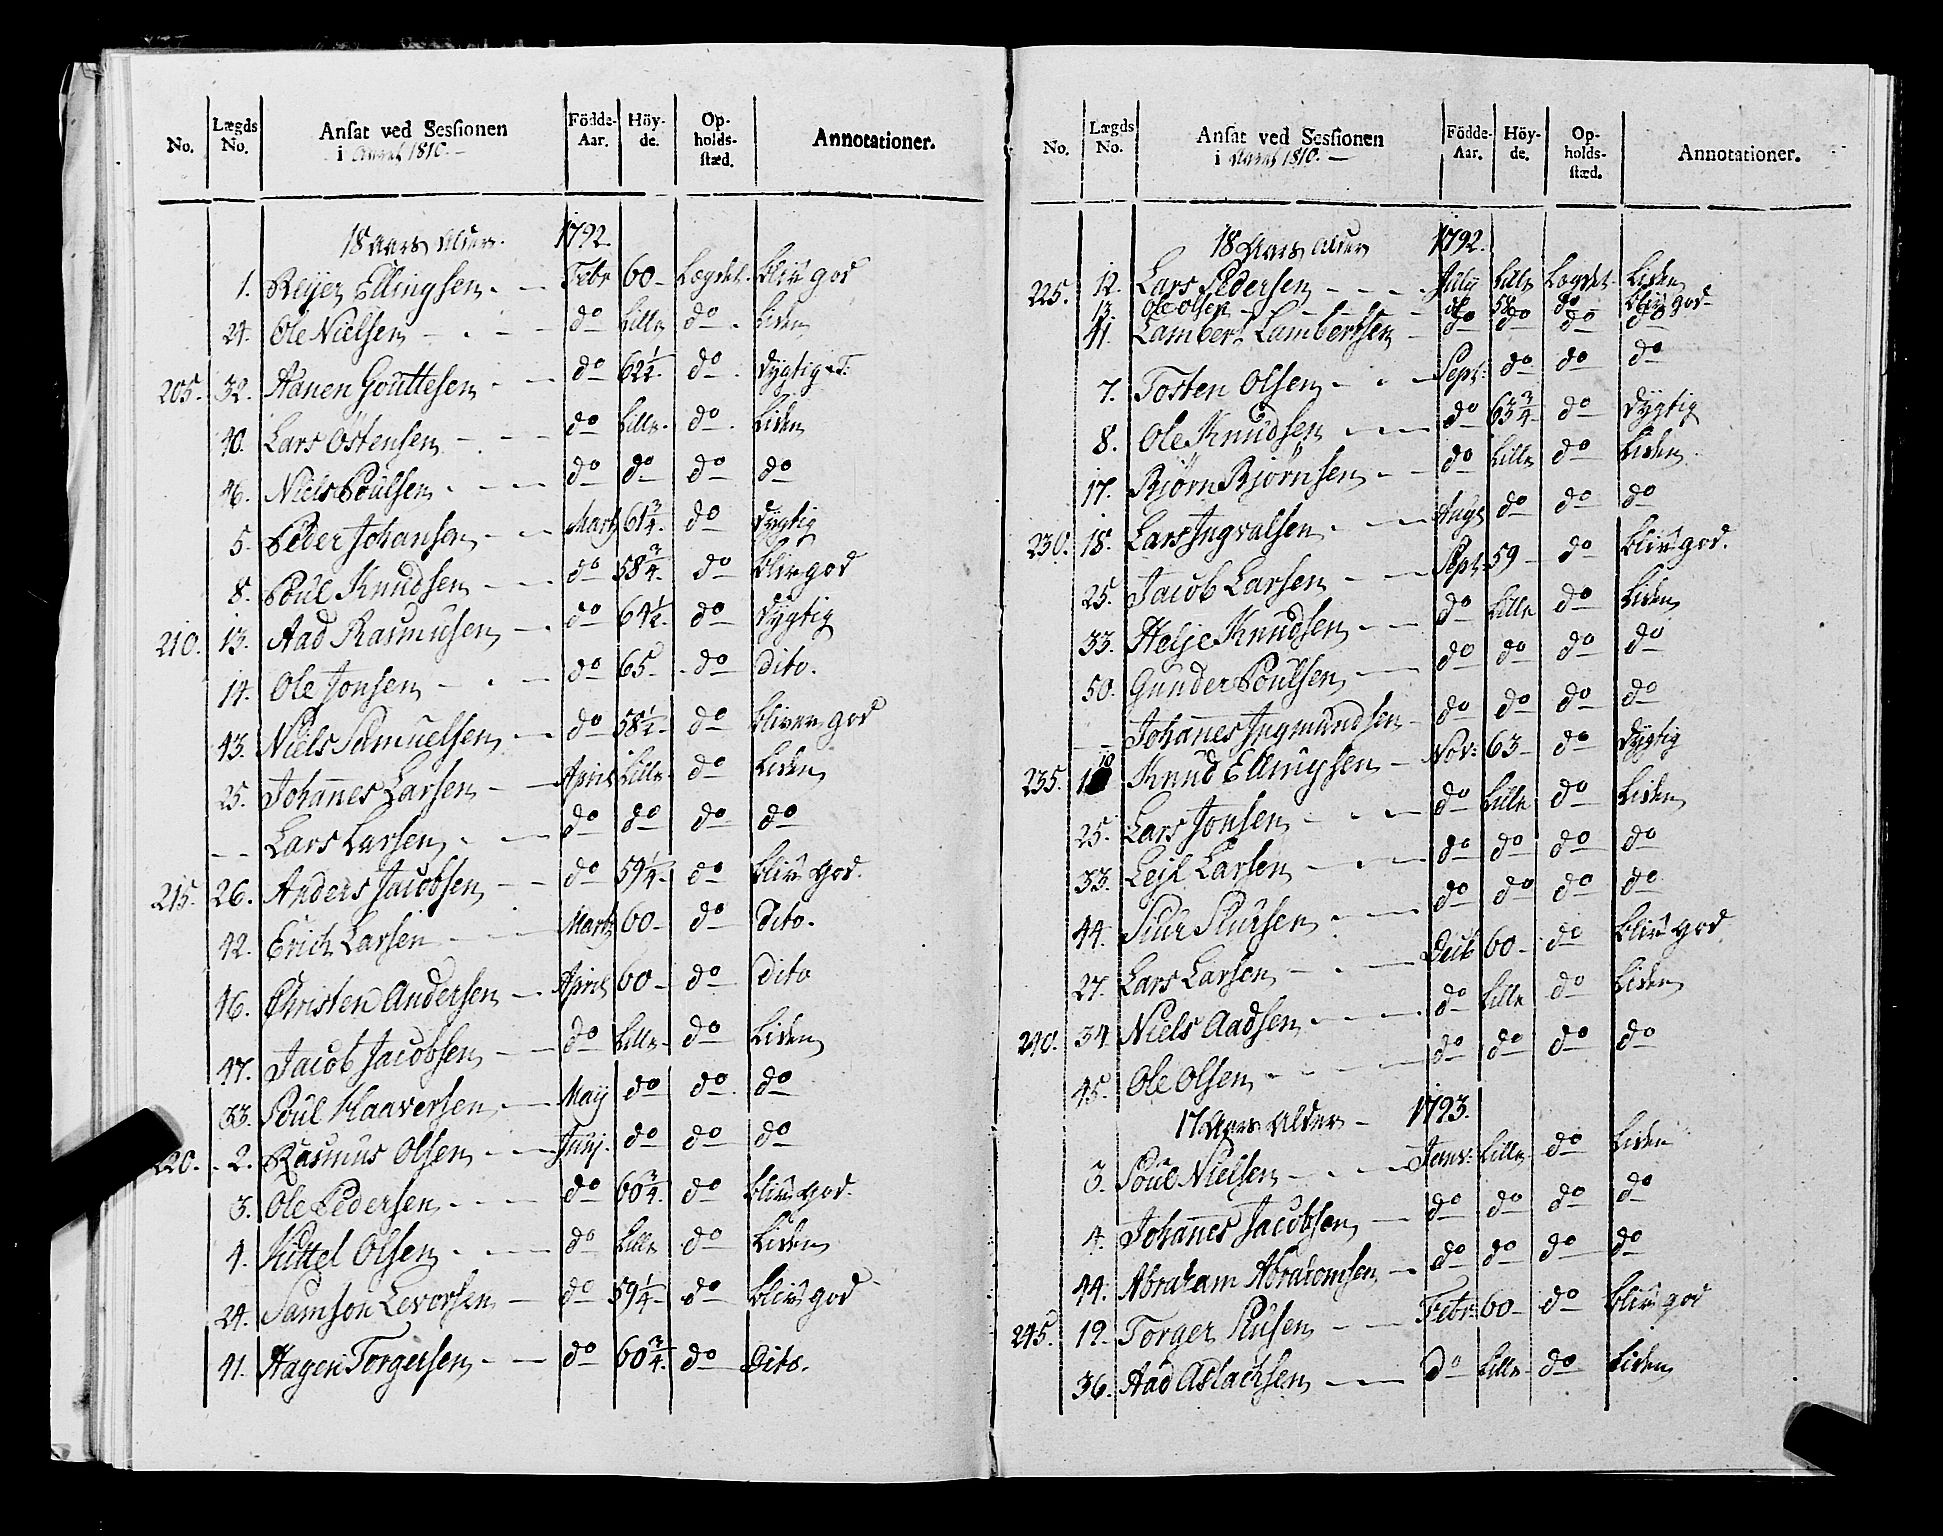 No. Lægds No. Ansat ved Sessionen i Aaret 1810. Födde-Aar. Höy-de. Op-holds-stæd. Annotationer.
18 Aars Alder. 1792.
1. Reijer Ellingsen Febr 60 Lægdet. bliv god
24. Ole Nielsen do Lille do Liden
205. 32. Aanen Gouttesen do 62½ do Dygtig T:
40. Lars Östensen do Lille do Liden
46. Niels Poulsen do do do do
5. Peder Johansen Marts 61¾ do Dygtig
8. Poul Knudsen do 58¾ do bliv god
210. 13. Aad Rasmusen do 64½ do Dygtig
14. Ole Jonsen do 65 do dito.
43. Niels Samuelsen do 58½ do bliver god
25. Johannes Larsen April Lille do Liden
- - Lars Larsen do do do do
215. 26. Anders Jacobsen do 59¼ do bliv god.
42. Erich Larsen Marts 60 do dito.
46. Christen Andersen April 60 do dito
47. Jacob Jacobsen do Lille do Liden
33. Poul Haaversen May do do do
220. 2. Rasmus Olsen Junj. do do do
3. Ole Pedersen do 60¾ do bliv god.
4. Kittel Olsen do Lille do Liden
24. Samson Levorsen do 59¼ do bliv god
41. Hagen Torgersen do 60¾ do Dito.
No. Lægds No. Ansat ved Sessionen i Aaret 1810. Födde-Aar. Höy-de. Op-holds-stæd. Annotationer.
18 Aars Alder 1792.
225. 12. Lars Pedersen July Lille Lægdet Liden
13. Ole Olsen do 58 do bliv god
41. Lambert Lambertsen do do do do
7. Tosten Olsen Sept: do do do
8. Ole Knudsen do 63¾ do Dygtig
17. Bjørn Bjørnsen do Lille do Liden
230. 18. Lars Ingvalsen Augs do do do
25. Jacob Larsen Sept: 59 do bliv god.
33. Helje Knudsen do Lille do Liden
50. Gunder Poulsen do do do do
- - Johannes Ingmundsen do do do do
235. 10 Knud Ellingsen Nov: 63 do Dygtig
25. Lars Jonsen do Lille do Liden
33. Lejl Larsen do do do do
44. Siur Siursen do do do do
27. Lars Larsen Decb 60 do bliv god
240. 34 Niels Aadsen do Lille do Liden
45. Ole Olsen do do do do
17 Aars Alder 1793.
3. Poul Nielsen Janv: Lille do Liden
4. Johannes Jacobsen do do do do
44. Abraham Abrahamsen do do do do
245. 19. Torger Siusen Febr: 60 do bliv god
36. Aad Aslachsen do Lille do Liden